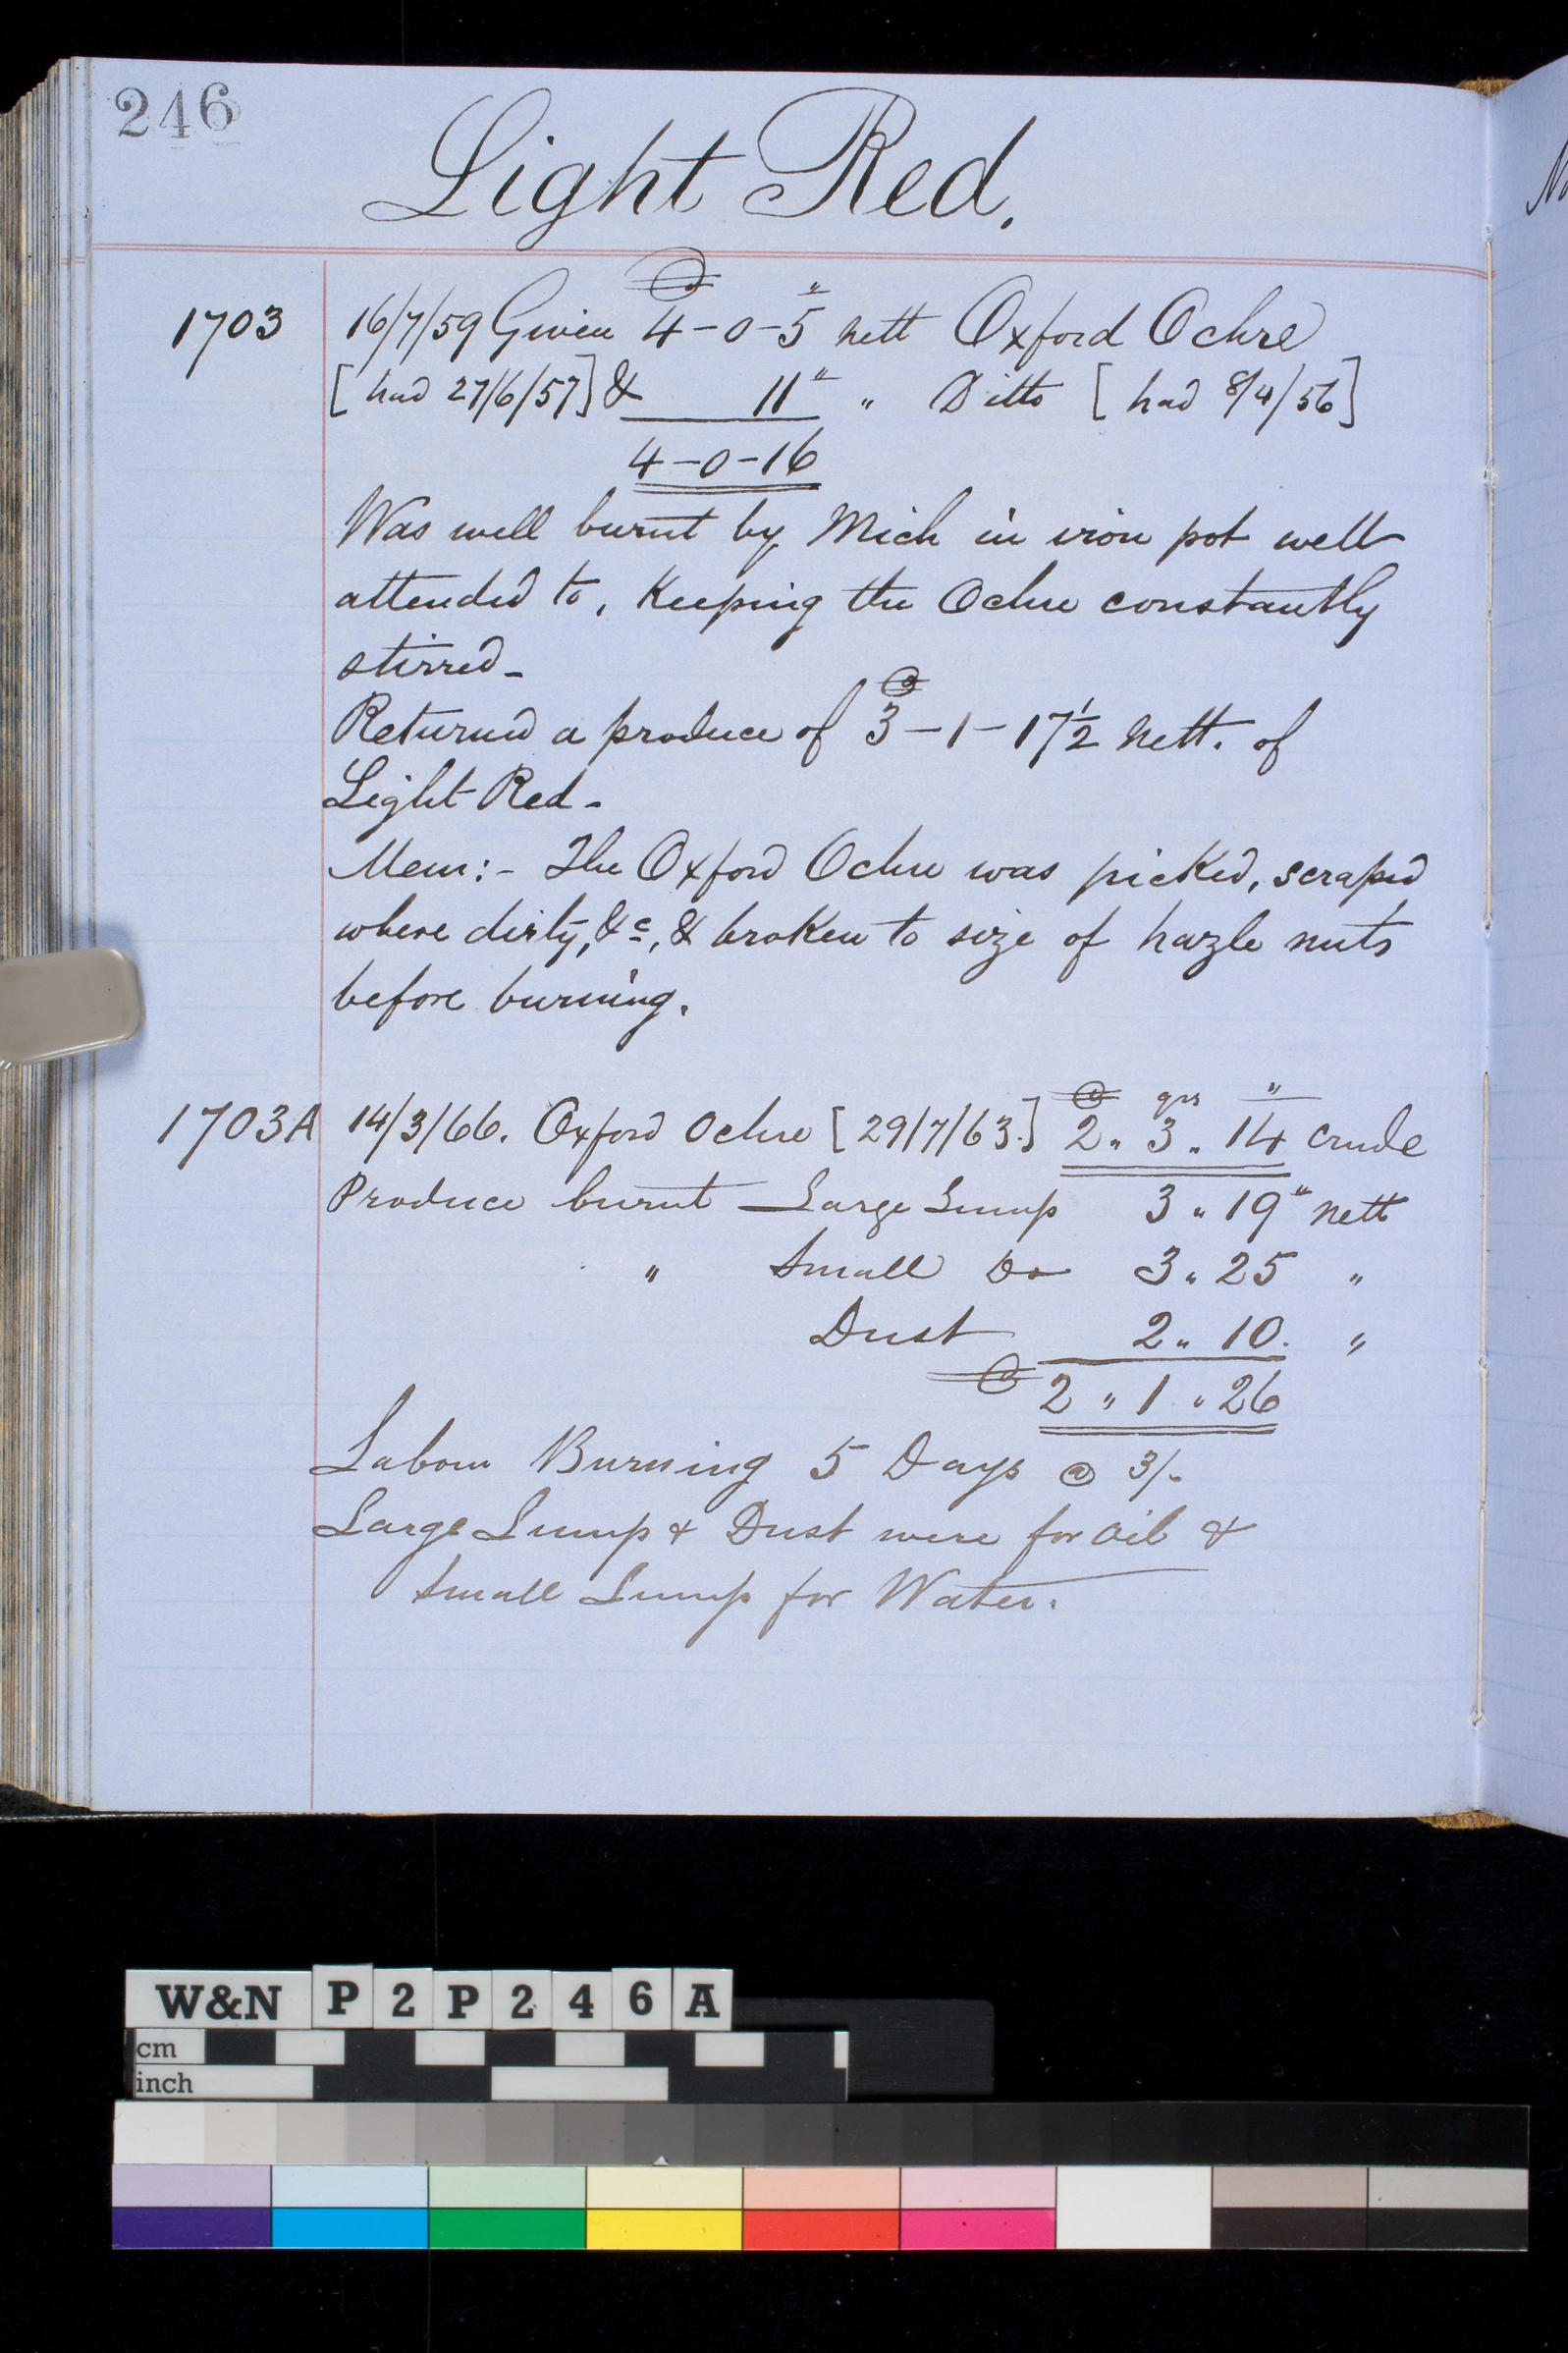 246
Light Red.
1703 16/7/59 Given 4-0-5 nett Oxford Ochre
[had 27/6/57] & 11" " Ditto [had 8/4/56]
4-0-16
Was well burnt by Mich in iron pot well
attended to, Keeping the Ochre constantly
stirred-
Returned a produce of 3-1-17½ nett. of
Light Red-
Mem:- The Oxford Ochre was picked, scraped
where dirty, &c, & broken to size of hazle nuts
before burning.
1703A 14/3/66. Oxford Ochre [29/7/63.] 2" 3" 14 crude
qrs "
Produce burnt Large Lump 3" 19" nett
" Small Do 3" 25 "
Dust 2" 10. "
2 " 1 " 26
Labour Burning 5 Days @ 3/-
Large Lump & Dust were for Oil &
Small Lump for Water.
W&N P2P246A
cm
inch